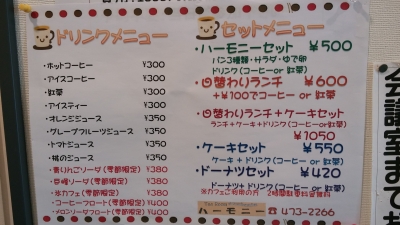 ドリンクメニュー
・ホットコーヒー ¥300
・アイスコーヒー ¥300
・紅茶 ¥300
・アイスティー ¥300
・オレンジジュース ¥350
・グレープフルーツジュース ¥350
・トマトジュース ¥350
・桃のジュース ¥350
・青りんごソーダ(季節限定) ¥380
・巨峰ソーダ(季節限定) ¥380
・氷カフェ(季節限定) ¥380
・コーヒーフロート(季節限定) ¥400
・メロンソーダフロート(季節限定) ¥400
セットメニュー
・ハーモニーセット ¥500
パン3種類・サラダ・ゆで卵
ドリンク(コーヒーor紅茶)
・日替わりランチ ¥600
+¥100でコーヒー or 紅茶
・日替わりランチ+ケーキセット
ランチ+ケーキ+ドリンク(コーヒーor紅茶)
¥1050
・ケーキセット ¥550
ケーキ+ドリンク(コーヒーor紅茶)
・ドーナツセット ¥420
ドーナツ+ドリンク(コーヒーor紅茶)
※カフェご利用の方 2時間駐車料金無料
ハーモニー ☎473-2266
会議室まで